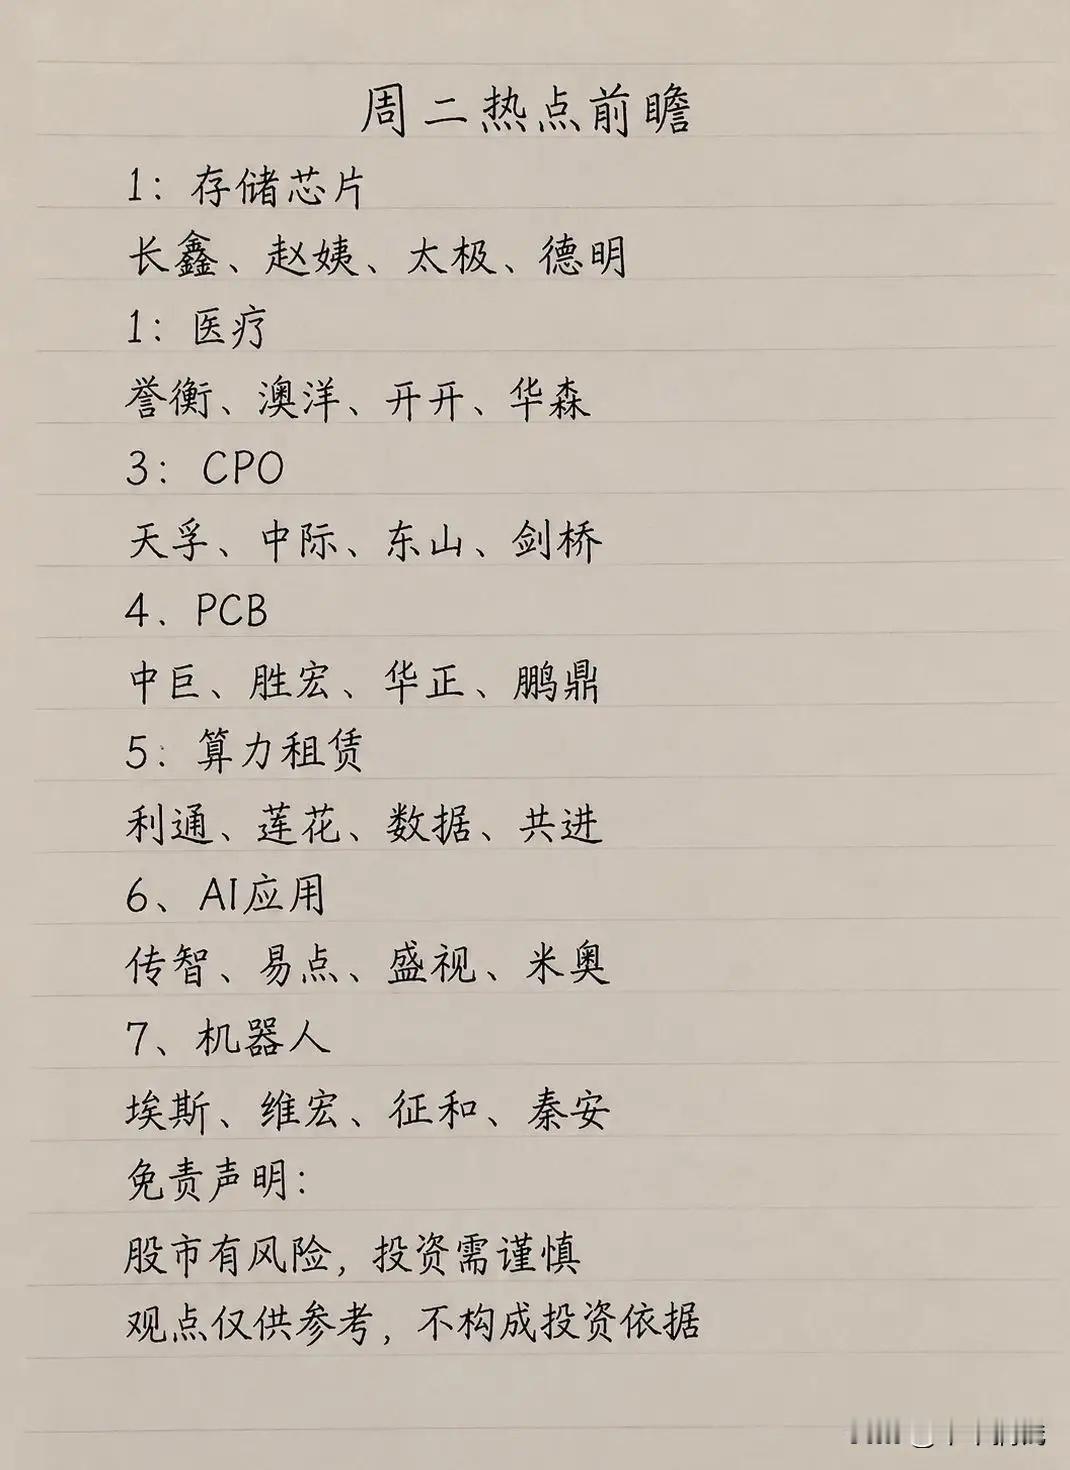 周二热点前瞻
1：存储芯片
长鑫、赵姨、太极、德明
1：医疗
誉衡、澳洋、开开、华森
3：CPO
天孚、中际、东山、剑桥
4、PCB
中巨、胜宏、华正、鹏鼎
5：算力租赁
利通、莲花、数据、共进
6、AI应用
传智、易点、盛视、米奥
7、机器人
埃斯、维宏、征和、秦安
免责声明：
股市有风险，投资需谨慎
观点仅供参考，不构成投资依据